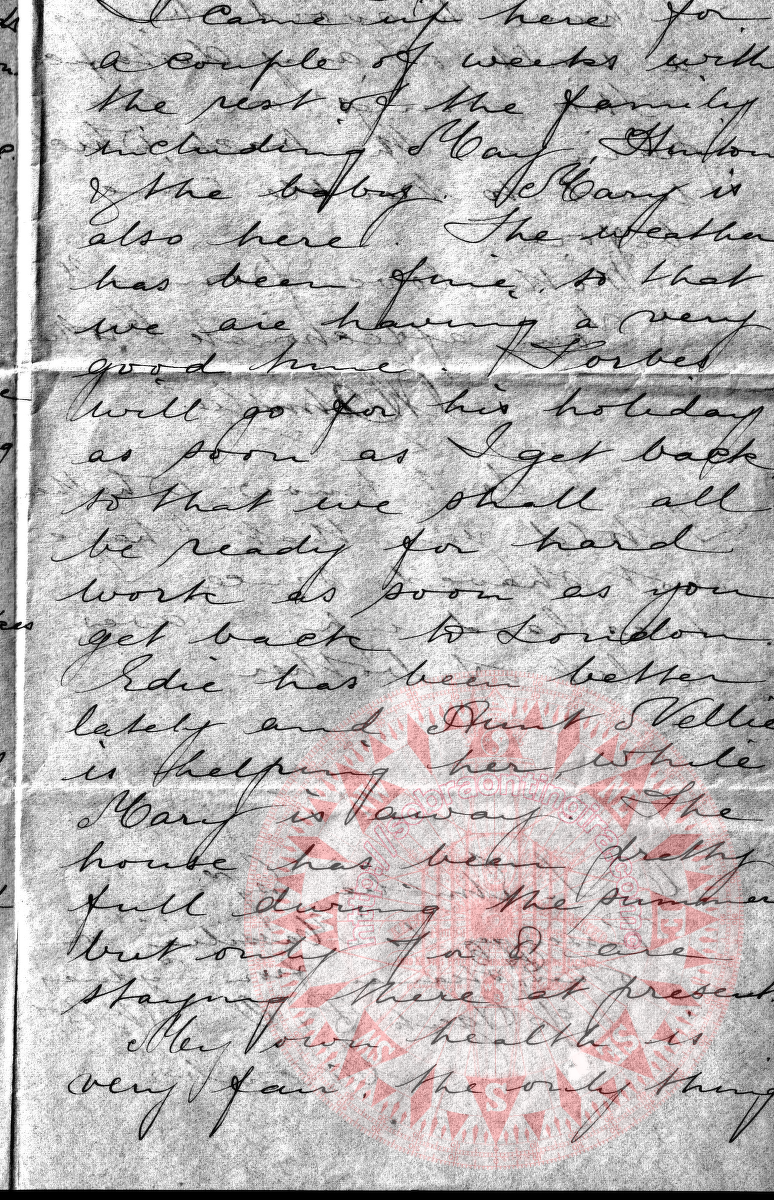 I came up here for
a couple of weeks with
the rest of the family
including May, Hinton
& the baby. Mary is
also here. The weather
has been fine, so that
we are having a very
good time. Forbes
will go for his holiday
as soon as I get back
so that we shall all
be ready for hard
work as soon as you
get back to London.
Edie has been better
lately and Aunt Nellie
is helping her while
Mary is away. The
house has been pretty
full during the summer
but only 7 or 8 are
staying there at present
My own health is
very fair. the only thing